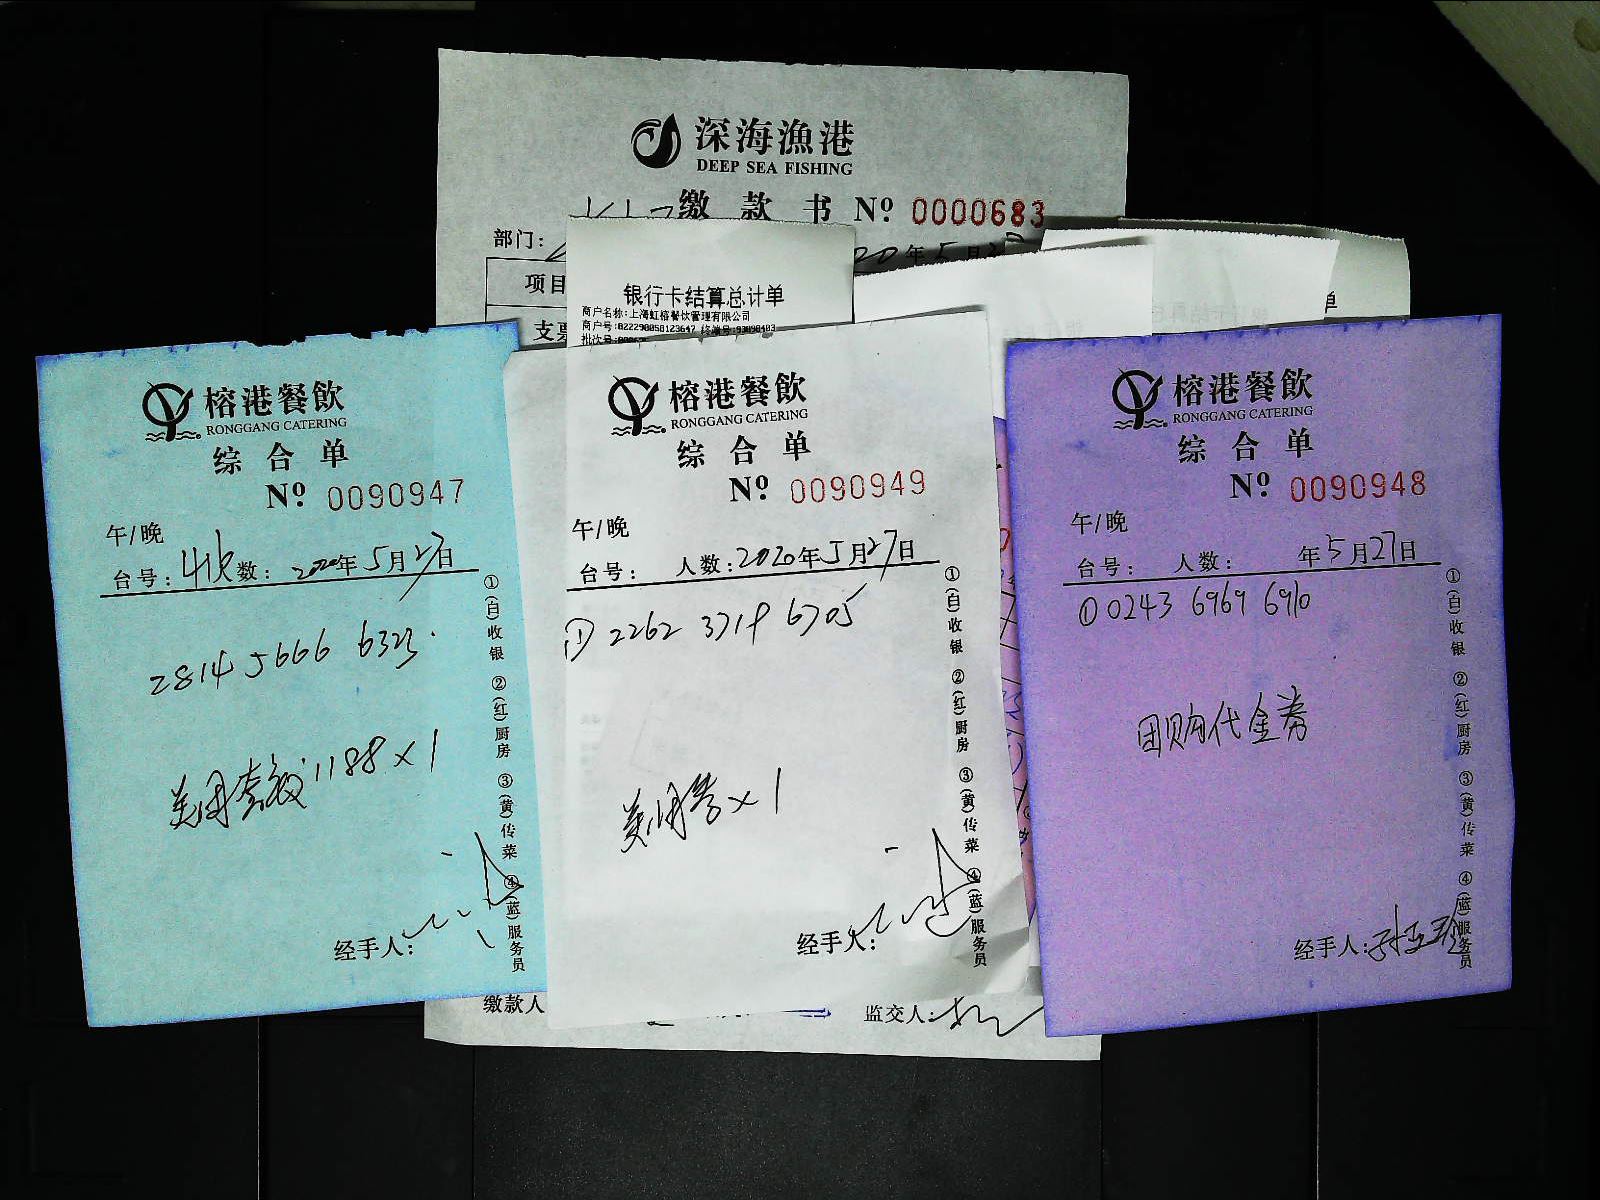 深海漁港
DEEP SEA FISHING
缴款书 Nº 0000683
部门: 20年5月
项目
银行卡结算总计单
商户名称:上海虹榕餐饮管理有限公司
商户号:822290058123647 终端号:93098403
批次号:
支票
榕港餐飲
RONGGANG CATERING
综合单
Nº 0090947
午/晚
台号: 数: 2020年5月27日
2814 5666 6323
美团套餐1188×1
经手人:
①(白)收银 ②(红)厨房 ③(黄)传菜 ④(蓝)服务员
榕港餐飲
RONGGANG CATERING
综合单
Nº 0090949
午/晚
台号: 人数: 2020年5月27日
① 2262 3719 6705
×1
经手人:
①(白)收银 ②(红)厨房 ③(黄)传菜 ④(蓝)服务员
榕港餐飲
RONGGANG CATERING
综合单
Nº 0090948
午/晚
台号: 人数: 年5月27日
① 0243 6969 6910
团购代金券
经手人:
①(白)收银 ②(红)厨房 ③(黄)传菜 ④(蓝)服务员
缴款人
监交人: